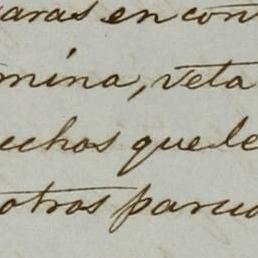 varas en con
mina, veta
echos que le
otros parci